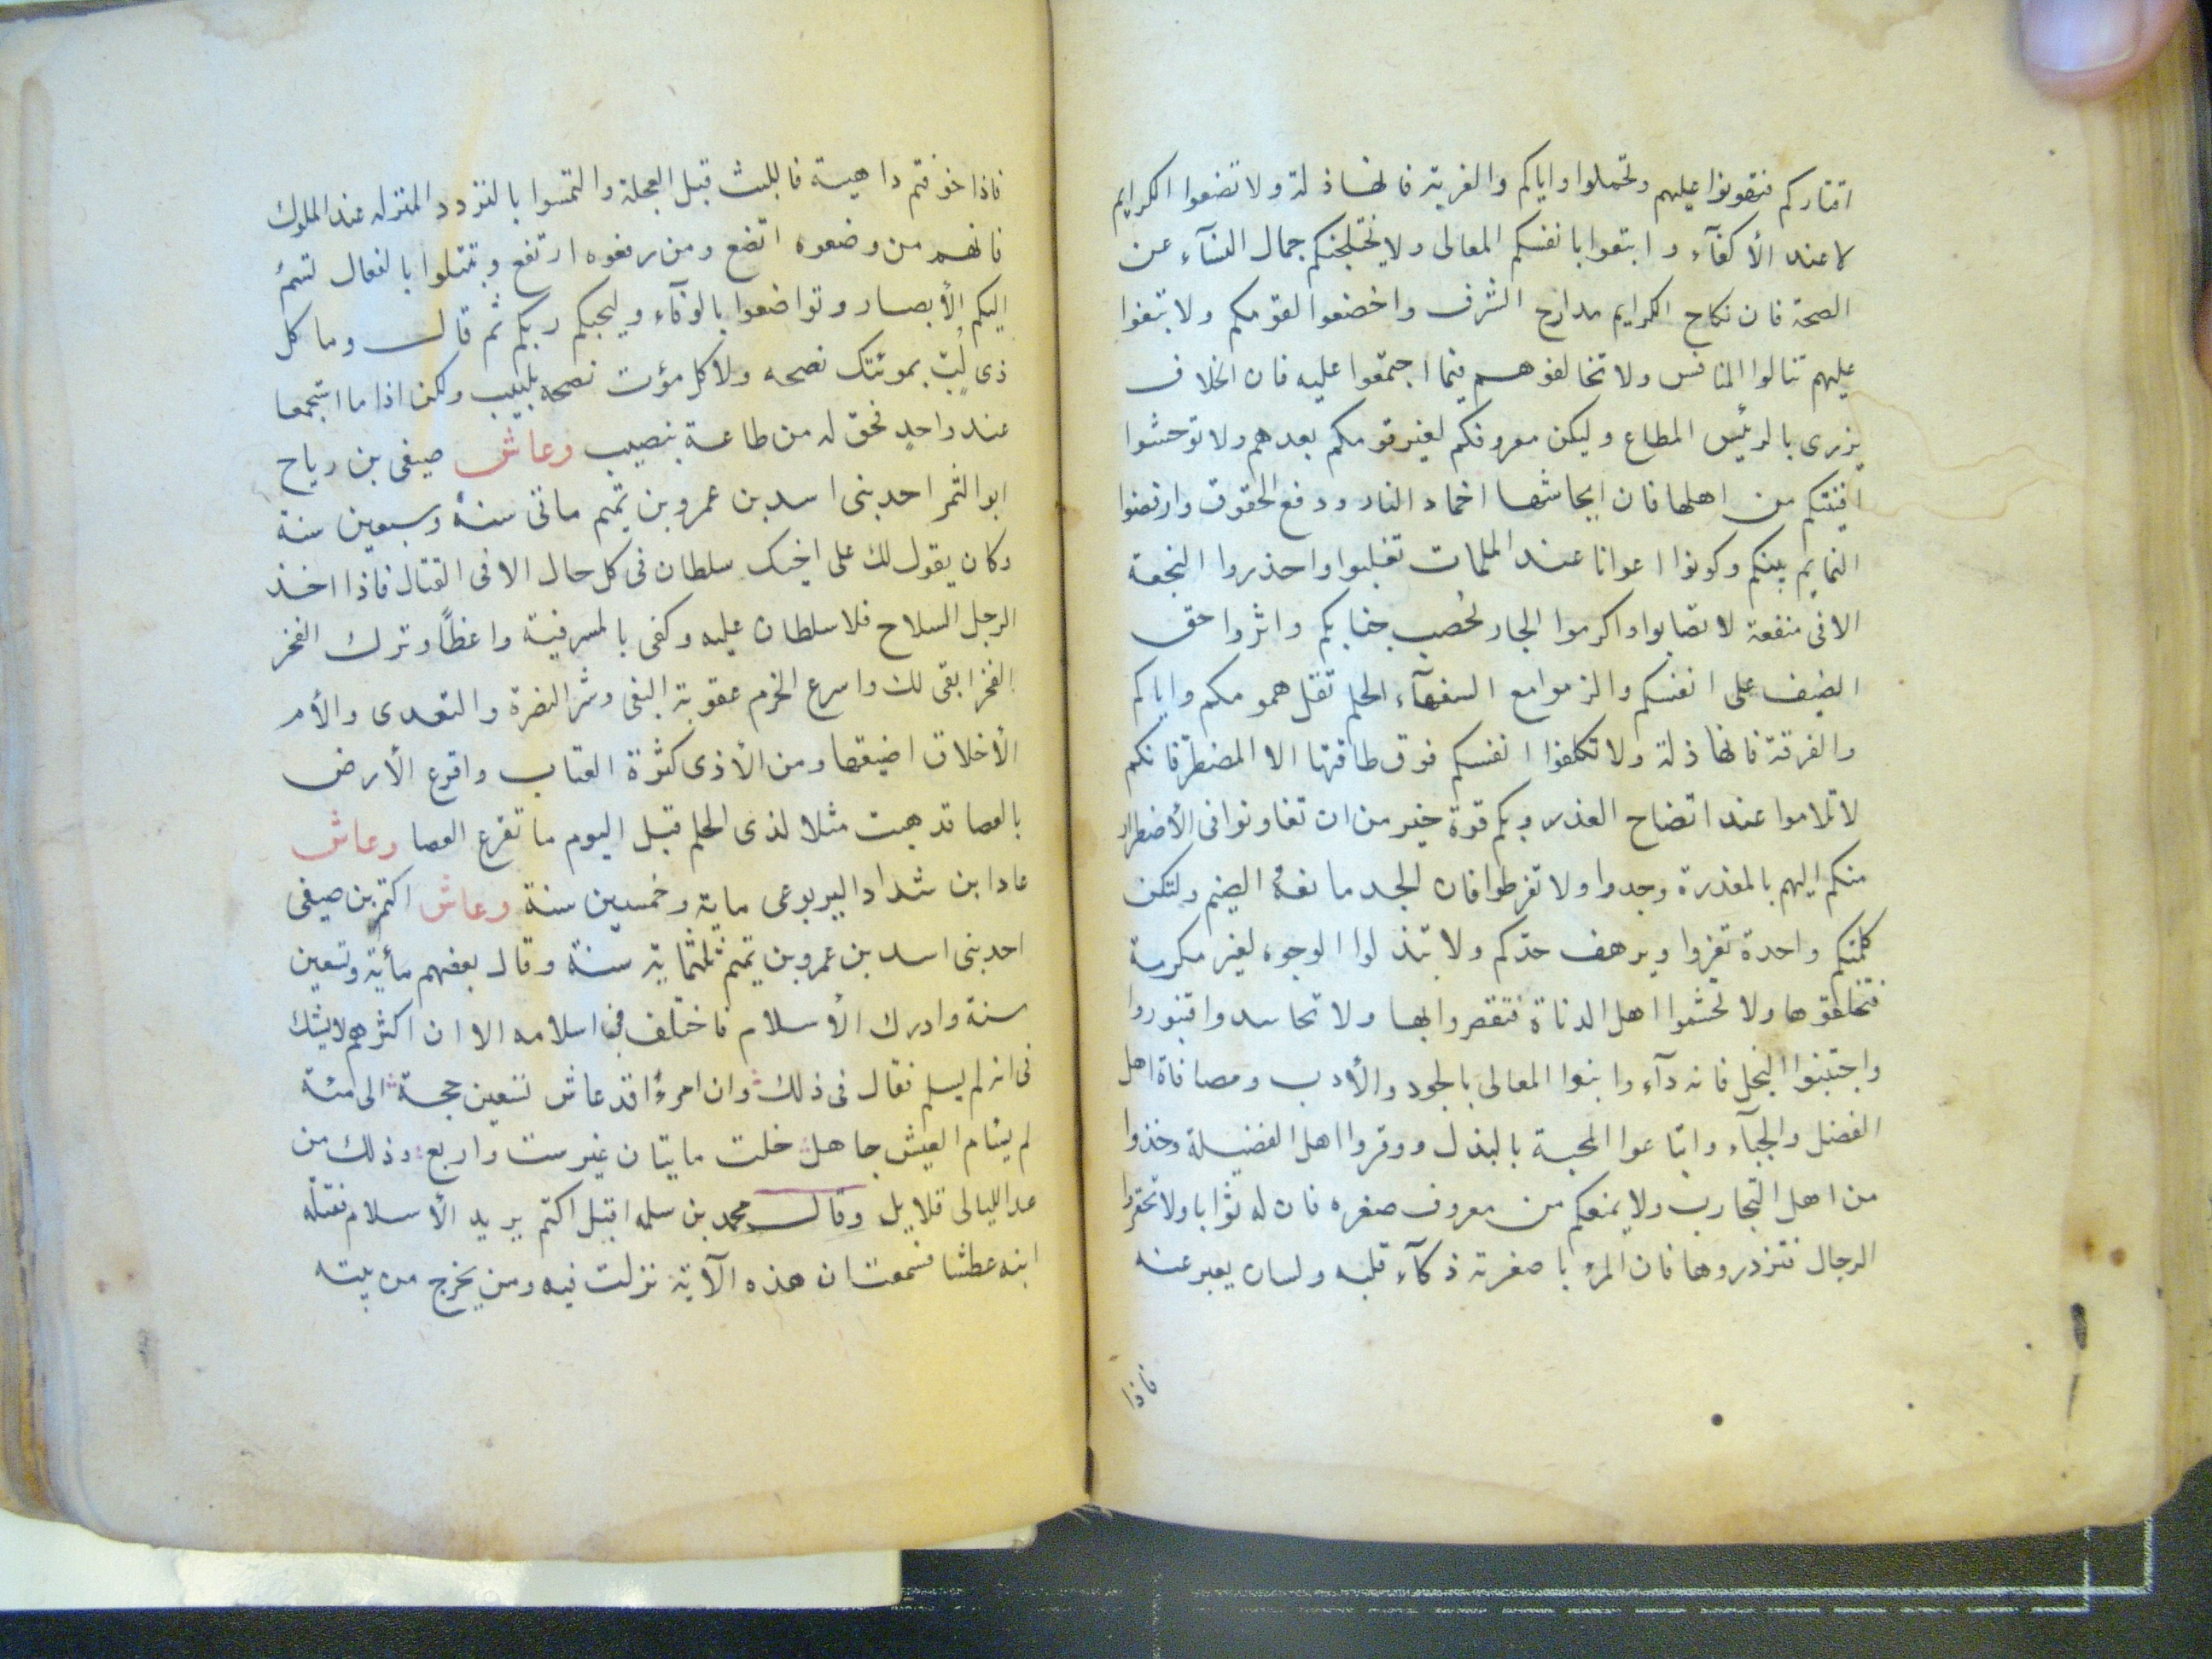 اقتاركم فتقووا عليهم وتحملوا واياكم والغربة فانها ذلة ولا تضعوا الكرايم
لا عند الأكفآء وابتغوا بانفسكم المعالى ولا يختلجنكم جمال النسآء عن
الصحة فان نكاح الكرايم مدارج الشرف واخضعوا لقومكم ولا تبغوا
عليهم تنالوا المنافس ولا تخالفوهم فيما اجتمعوا عليه فان الخلاف
يزرى بالرئيس المطاع وليكن معروفكم لغير قومكم بعدهم ولا توحشوا
افنيتكم من اهلها فان ايحاشها اخماد النار ودفع الحقوق وارفضوا
النمايم بينكم وكونوا اعوانا عند الملمات تغلبوا واحذروا النجعة
الا فى منفعة لا تصابوا واكرموا الجار لخصب جنابكم واثروا حق
الضيف على انفسكم والزموا مع السفهآء الحلم تقل همومكم واياكم
والفرقة فانها ذلة ولا تكلفوا انفسكم فوق طاقتها الا المضطر فانكم
لا تلاموا عند اتضاح العذر وبكم قوة خير من ان تعاونوا فى الأضطرار
منكم اليهم بالمعذرة وجدوا ولا تفرطوا فان الجد مانعة الضيم ولتكن
كلمتكم واحدة تعزوا ويرهف حدكم ولا تبذلوا الوجوه لغير مكرمة
فتخلقوها ولا تحشموا اهل الدناة فتقصروا بها ولا تحاسدوا فتبوروا
واجتنبوا البخل فانه دآء وابنوا المعالى بالجود والأدب ومصافاة اهل
الفضل والحبآء وابتاعوا المحبة بالبذل ووقروا اهل الفضيلة وخذوا
من اهل التجارب ولا يمنعكم من معروف صغره فان له ثوابا ولا تحقروا
الرجال فتزدروها فان المرء باصغرته ذكآء قلبه ولسان يعبر عنه
فاذا
فاذا خوفتم داهية فاللبث قبل العجلة والتمسوا بالتودد المنزله عند الملوك
فانهم من وضعوه اتضع ومن رفعوه ارتفع وتنبلوا بالفعال تسم
اليكم الأبصار وتواضعوا بالوفآء وليحبكم ربكم ثم قال وما كل
ذى لُبٍّ بموئتك نصحه ولا كل مؤت نصحه بلبيب ولكن اذا ما استجمعا
عند واحدٍ فحق له من طاعة بنصيب وعاش صيفى بن رياح
ابو اكثم احد بنى اسد بن عمرو بن تميم مائتى سنة وسبعين سنة
وكان يقول لك على اخيك سلطان فى كل حال الا فى القتال فاذا اخذ
الرجل السلاح فلا سلطان عليه وكفى بالمسرفية واعظاً وترك الفخر
الفخر ابقى لك واسرع الجرم عقوبة البغى وشر النصرة والتعدى والأم
الأخلاق اضيقها ومن الأذى كثرة العتاب واقرع الأرض
بالعصا قد هبت مثلا لذى الحلم قبل اليوم ما تقرع العصا وعاش
عاد ابن شداد اليربوعى ماية وخمسين سنة وعاش اكتم بن صيفى
احد بنى اسد بن عمرو بن تميم ثلثماية سنة وقال بعضهم مأية وتسعين
سنة وادرك الأسلام فاختلف فى اسلامه الا ان اكثرهم لا يشك
فى انه لم يسلم فقال فى ذلك وان امرءًا قد عاش تسعين حجة الى مئة
لم يسام العيش جاهل خلت مايتان غير ست واربع وذلك من
عد الليالى قلايل وقال محمد بن سلمه اقبل اكتم يريد الأسلام فقتله
ابنه عطشا فسمعت ان هذه الآية نزلت فيه ومن يخرج من بيته